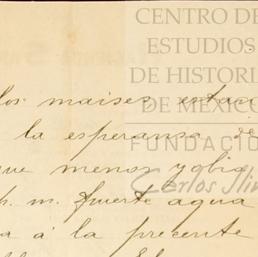 CENTRO DE
ESTUDIOS
DE HISTORIA
DE MÉXICO
FUNDACIÓN
Carlos Slim
los maises estan
la esperansa de
que menos
p. m. fuerte agua
a á la precente